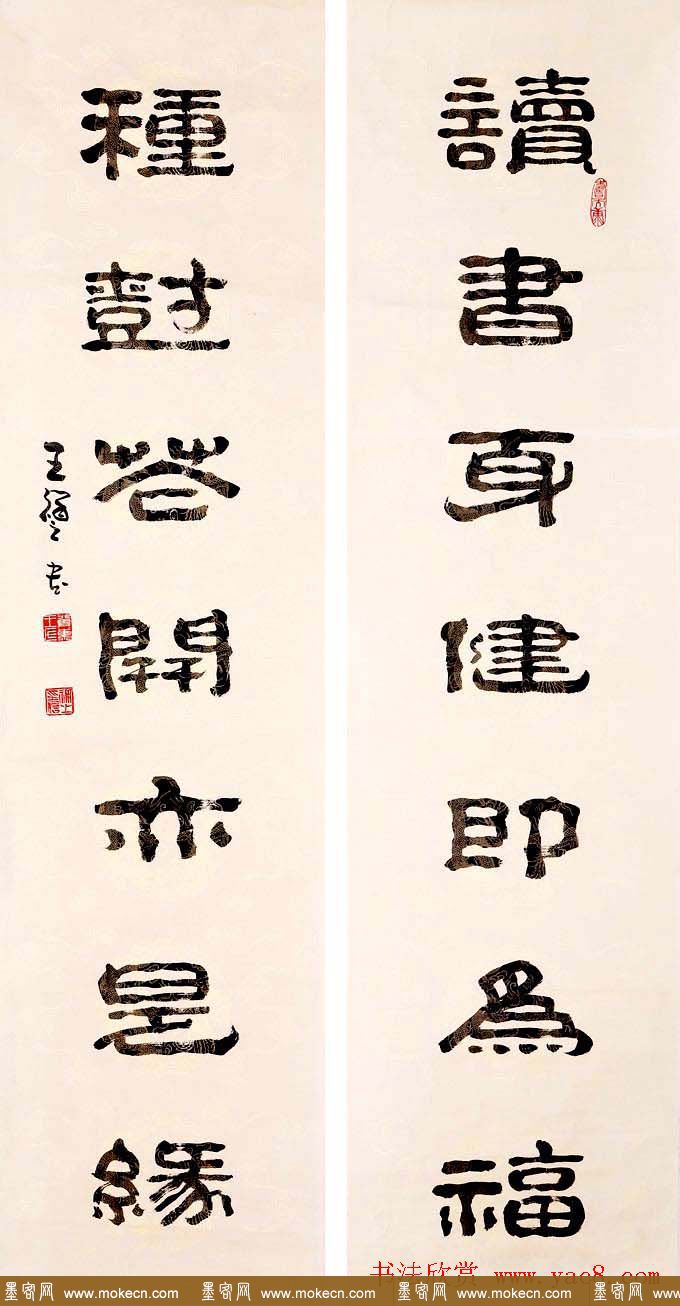 讀書身健即爲福
種尌花開亦是緣
王 书
书法欣赏 www.yac8.com
墨客网 www.mokecn.com 墨客网 www.mokecn.com 墨客网 www.mokecn.com 墨客网 www